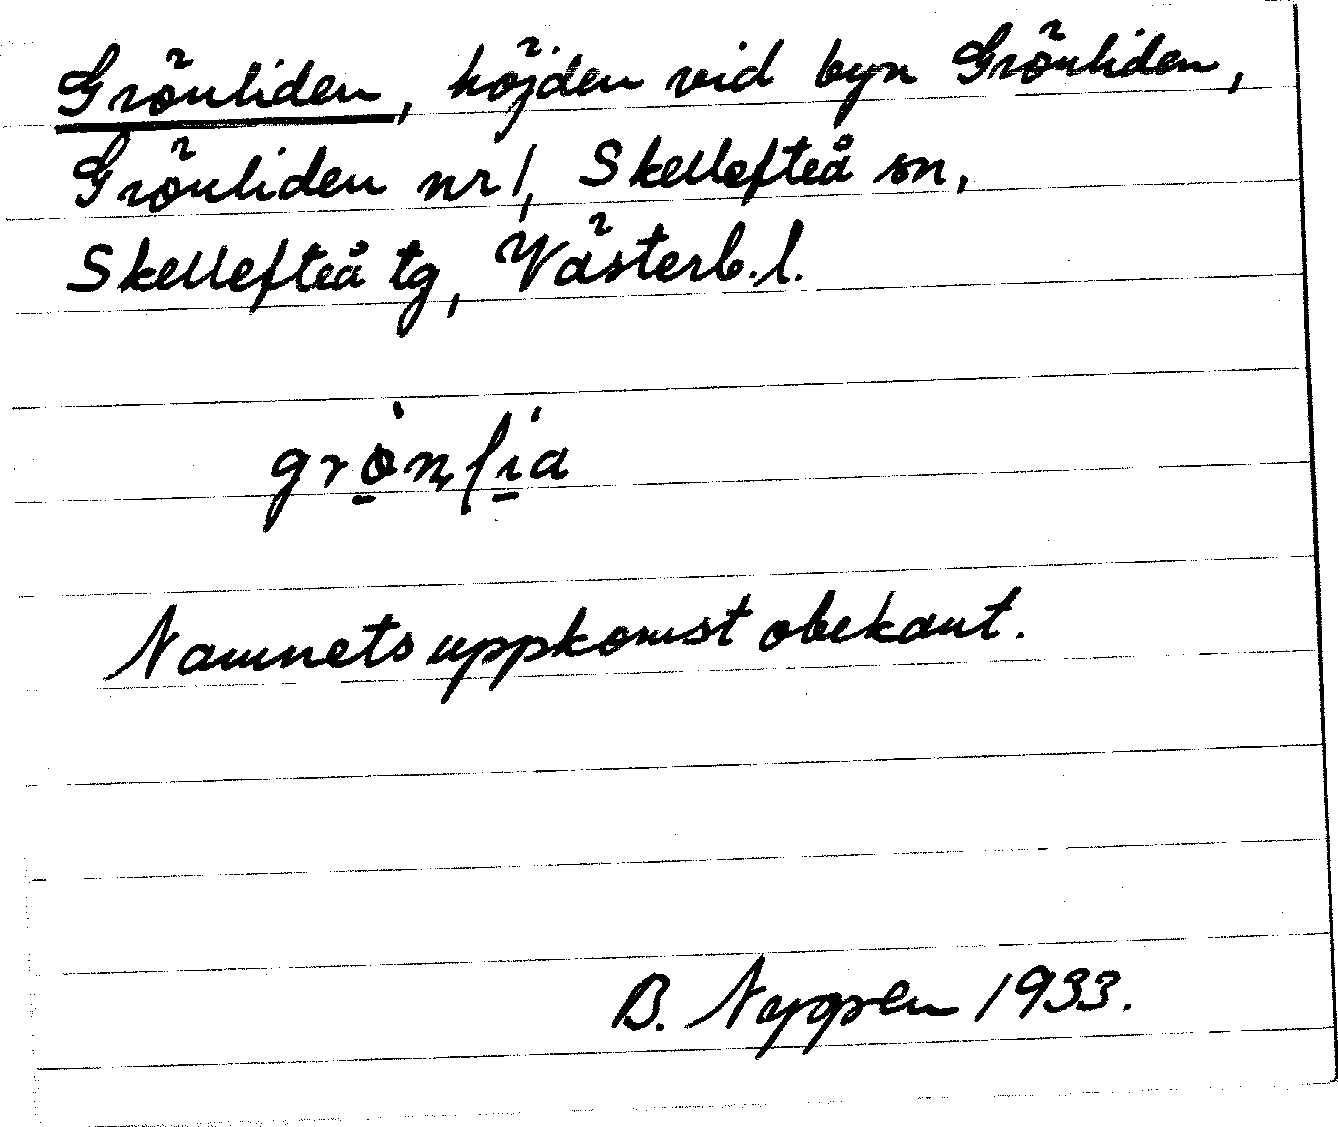 Grönliden, höjden vid byn Grönliden,
Grönliden nr 1, Skellefteå sn,
Skellefteå tg, Västerb. l.
Namnets uppkomst obekant.
B. Nygren 1933.